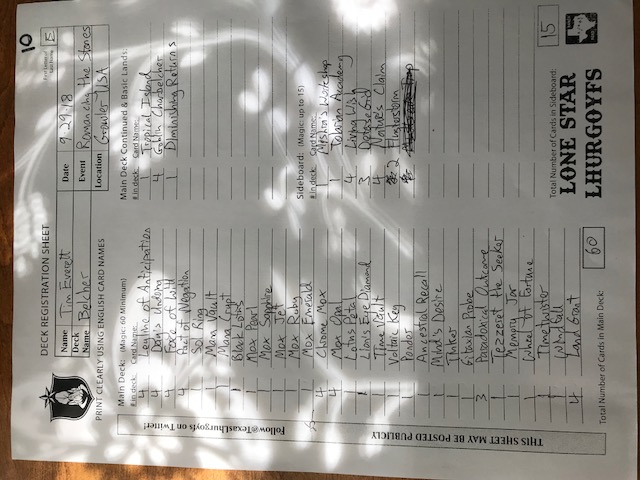 10
DECK REGISTRATION SHEET
First Letter of Last Name E
Name Tim Everett
Date 9-29-18
Deck Name Belcher
Event Romancing the Stones
Location Growler USA
PRINT CLEARLY USING ENGLISH CARD NAMES
Follow@TexasLhurgoyfs on Twitter!
THIS SHEET MAY BE POSTED PUBLICLY
Main Deck: (Magic: 60 Minimum)
# in deck: Card Name:
4 Leyline of Anticipation
4 Day's Undoing
4 Force of Will
4 Pact of Negation
1 Sol Ring
1 Mana Vault
1 Mana Crypt
1 Black Lotus
1 Mox Pearl
1 Mox Sapphire
1 Mox Jet
1 Mox Ruby
1 Mox Emerald
4 Chrome Mox
4 Mox Opal
1 Lotus Petal
1 Lion's Eye Diamond
1 Time Vault
1 Voltaic Key
1 Ponder
1 Ancestral Recall
1 Mind's Desire
1 Tinker
1 Gitaxian Probe
3 Paradoxical Outcome
1 Tezzeret the Seeker
1 Memory Jar
1 Wheel of Fortune
1 Timetwister
1 Windfall
4 Land Grant
Total Number of Cards in Main Deck: 60
Main Deck Continued & Basic Lands:
# in deck: Card Name:
1 Tropical Island
4 Goblin Charbelcher
1 Diminishing Returns
Sideboard: (Magic: up to 15)
# in deck: Card Name:
1 Mishra's Workshop
1 Tolarian Academy
4 Living Wish
3 Defense Grid
4 Nature's Claim
2 Flusterstorm
Total Number of Cards in Sideboard: 15
LONE STAR
LHURGOYFS